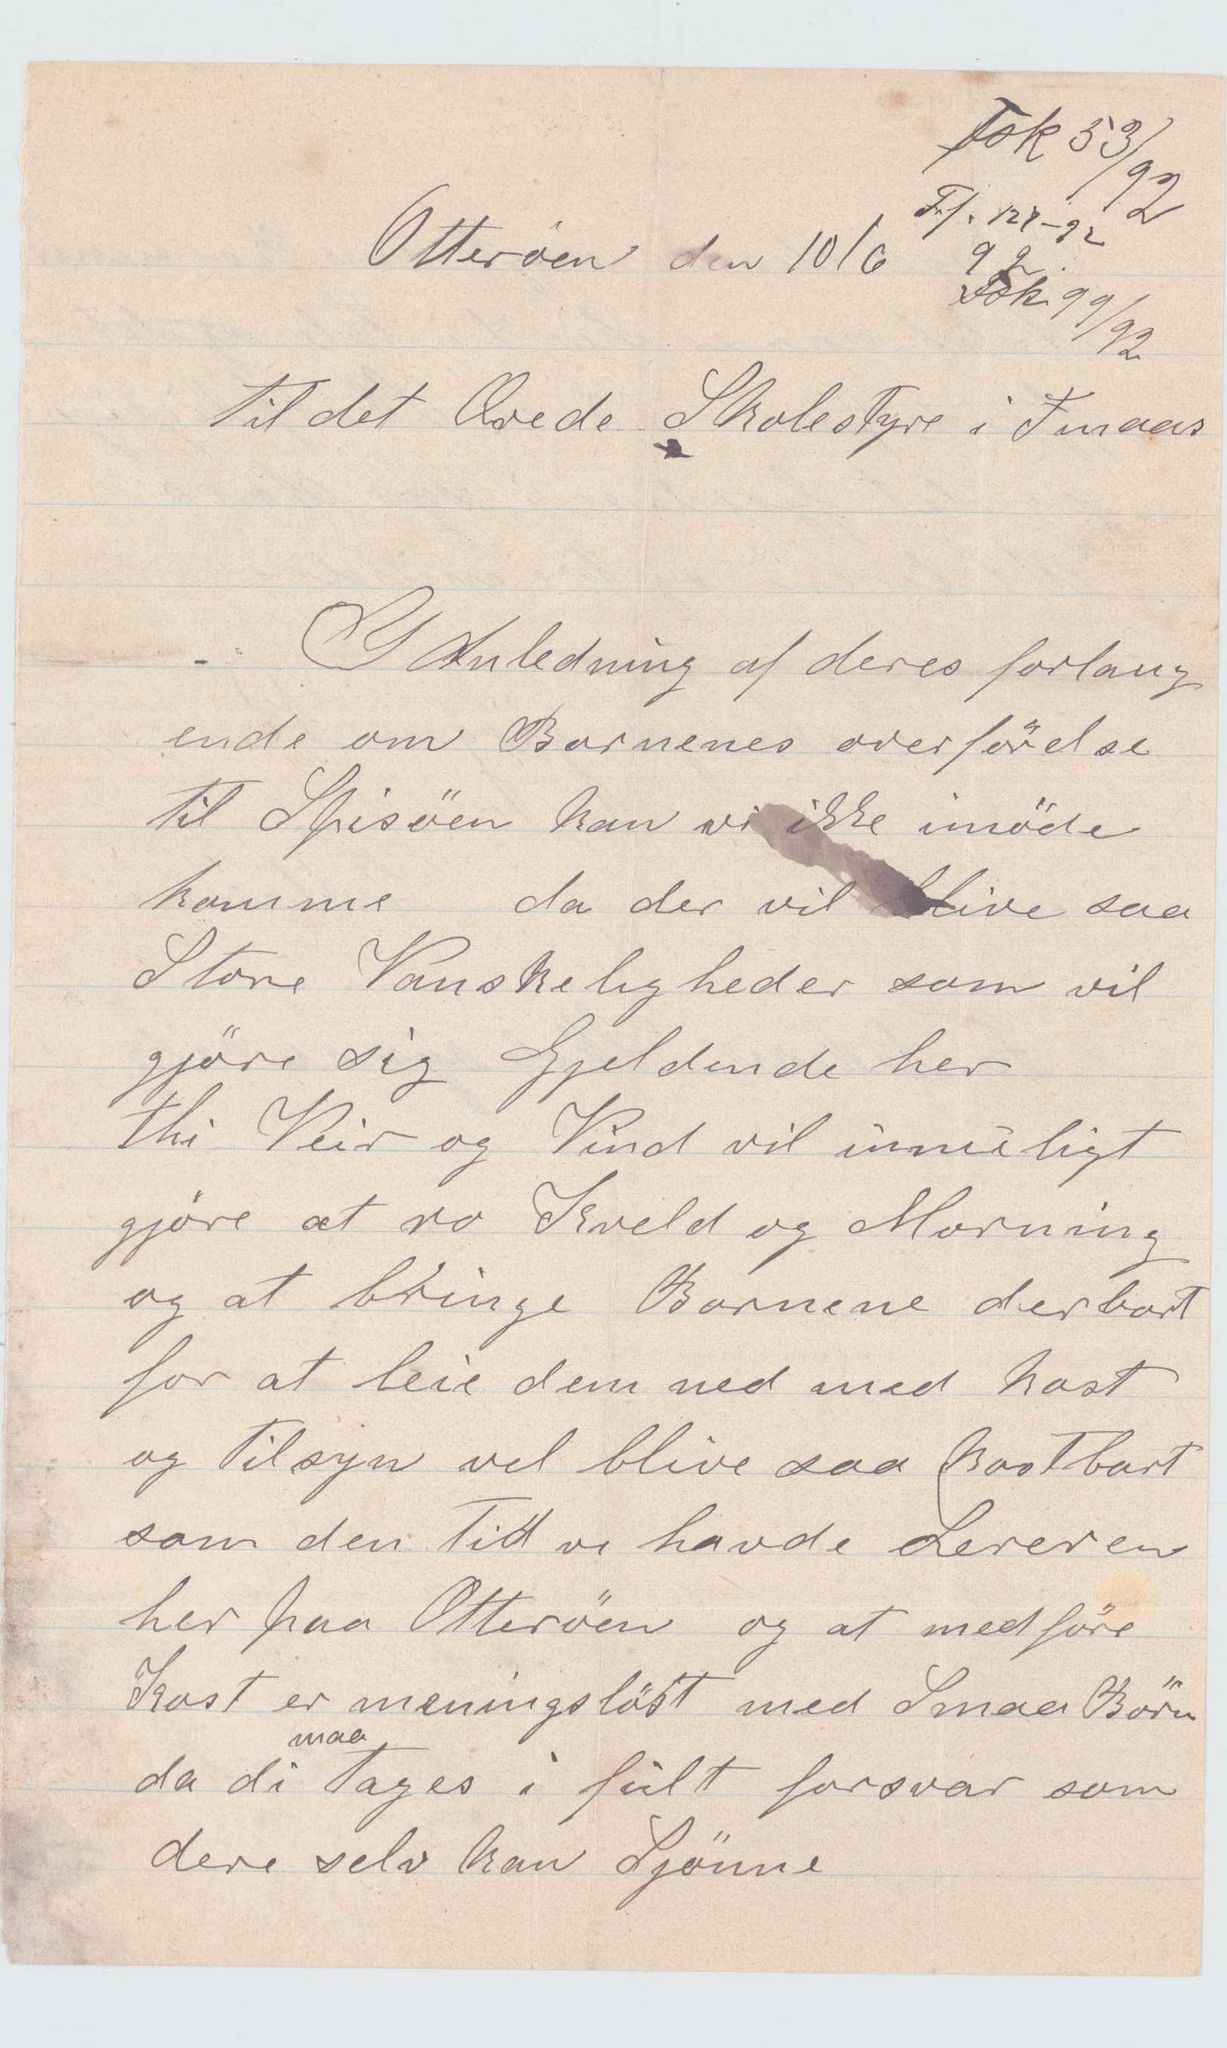 Fsk 53/92
Fsk. 128-92
Otterøen den 10/6 92.
Fsk. 99/92
Til det Ærede Skolestyre i Finaas
I Anledning af deres forlang
ende om Barnenes overförelse
til Spisöen kan vi ikke imöde
komme da der vil blive saa
Store Vanskeligheder som vil
gjöre sig Gjeldende her
thi Veir og Vind vil imueligt
gjöre at ro Kveld og Morning
og at bringe Barnene derbort
for at leie dem ned med kost
og Tilsyn vel blive saa Kostbart
som den Tid vi havde Lereren
her paa Otteröen og at medföre
Kost er meningslöst med Smaa Börn
da di maa Tages i fült forsvar som
dere selv kan Sjönne